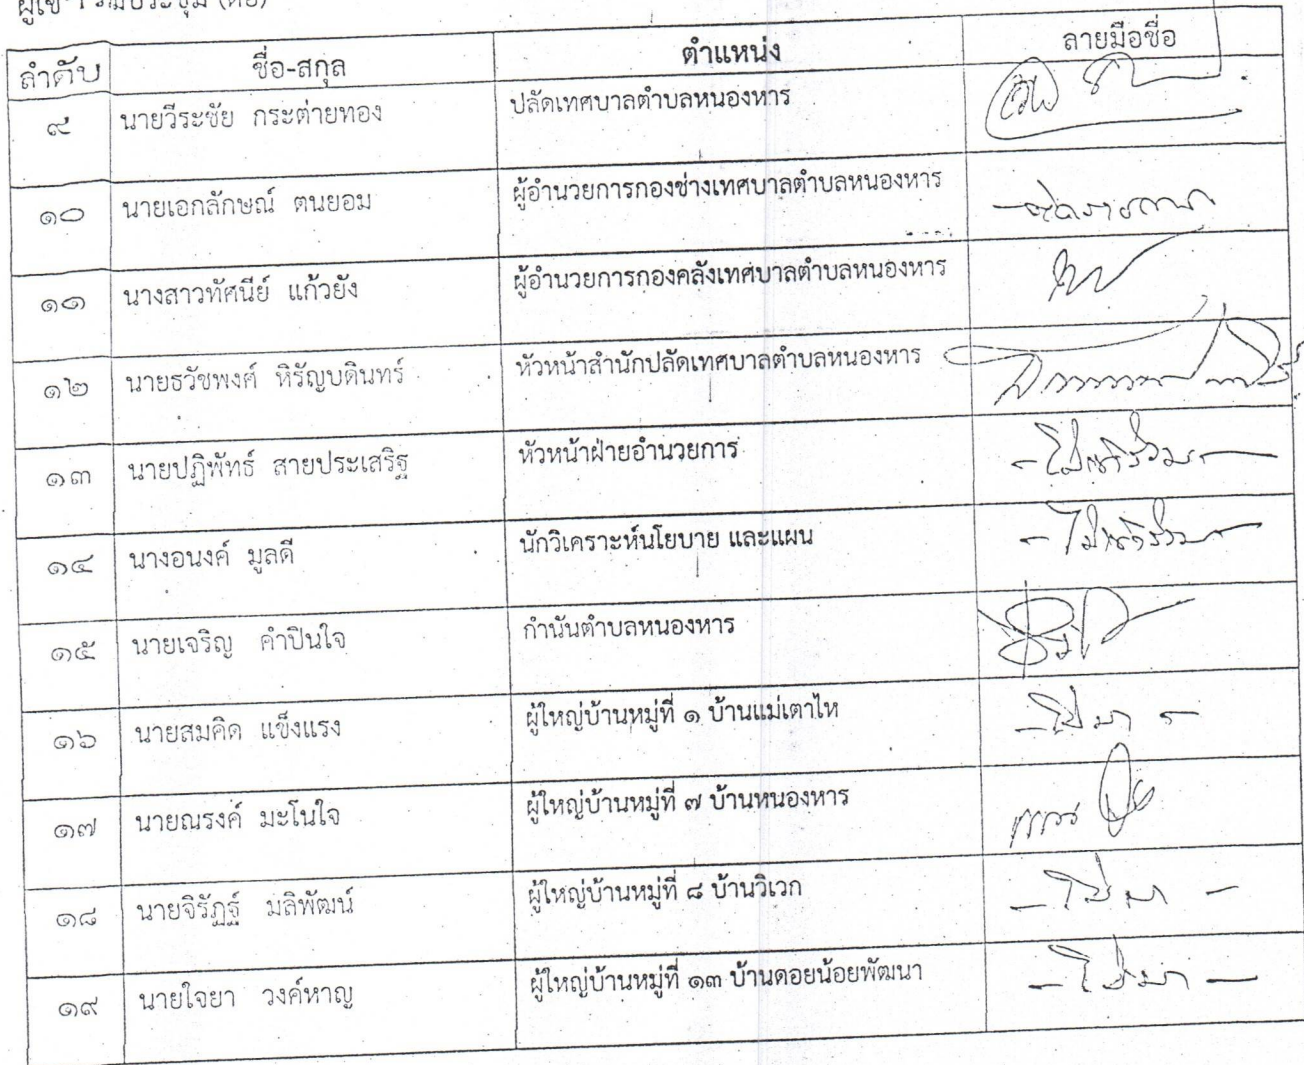 ผู้เข้าร่วมประชุม (ต่อ)
ลำดับ ชื่อ-สกุล ตำแหน่ง ลายมือชื่อ
๙ นายวีระชัย กระต่ายทอง ปลัดเทศบาลตำบลหนองหาร
๑๐ นายเอกลักษณ์ ตนยอม ผู้อำนวยการกองช่างเทศบาลตำบลหนองหาร
๑๑ นางสาวทัศนีย์ แก้วยัง ผู้อำนวยการกองคลังเทศบาลตำบลหนองหาร
๑๒ นายธวัชพงศ์ หิรัญบดินทร์ หัวหน้าสำนักปลัดเทศบาลตำบลหนองหาร
๑๓ นายปฏิพัทธ์ สายประเสริฐ หัวหน้าฝ่ายอำนวยการ
๑๔ นางอนงค์ มูลดี นักวิเคราะห์นโยบาย และแผน
๑๕ นายเจริญ คำปินใจ กำนันตำบลหนองหาร
๑๖ นายสมคิด แข็งแรง ผู้ใหญ่บ้านหมู่ที่ ๑ บ้านแม่เตาไห - ไม่มา -
๑๗ นายณรงค์ มะโนใจ ผู้ใหญ่บ้านหมู่ที่ ๗ บ้านหนองหาร
๑๘ นายจิรัฏฐ์ มลิพัฒน์ ผู้ใหญ่บ้านหมู่ที่ ๘ บ้านวิเวก - ไม่มา -
๑๙ นายใจยา วงค์หาญ ผู้ใหญ่บ้านหมู่ที่ ๑๓ บ้านดอยน้อยพัฒนา - ไม่มา -